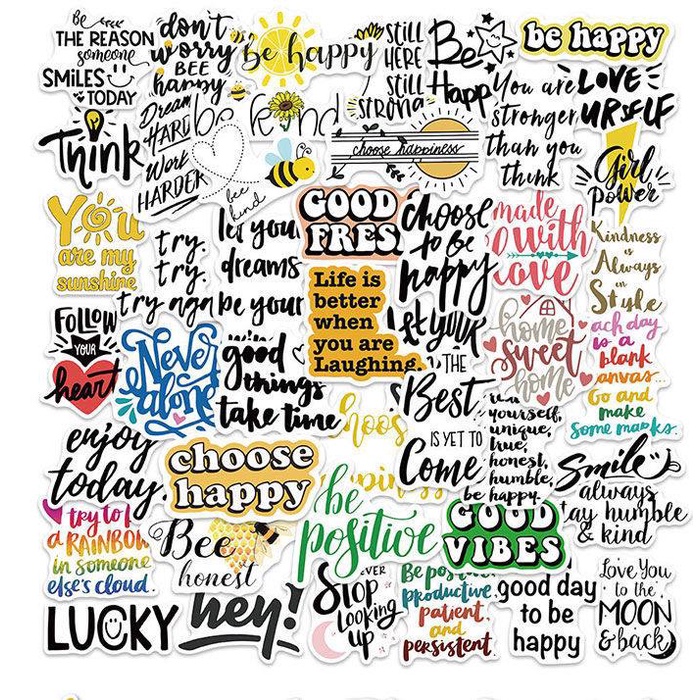 Be
THE REASON
someone
SMiLES
TODAY
don't
worry
BEE
happy
be happy
still
HERE
still
strong
Be
Happ
be happy
You are
stronger
than you
think
LOVE
URSELF
Think
Dream
HARD
Work
HARDER
be kind
bee
kind
choose happiness
Girl
Power
You
are my
sunshine
try.
try.
try aga
let you
dreams
be your
GOOD
FRES
choose
to be
happy
made
with
Love
Kindness
is
Always
in
Style
Life is
better
when
you are
Laughing.
FOLLOW
YOUR
heart
Never
alone
good
things
take time
let your
THE
Best
IS YET TO
Come
home
sweet
home
ach day
is a
blank
canvas.
Go and
make
Some marks.
enjoy
today.
choose
happy
hoos
pines
yourself,
unique,
true,
honest,
humble,
be happy.
Smile
always
tay humble
& kind
try to b
a RAINBOW
in someone
else's cloud.
Bee
honest
be
positive
GOOD
VIBES
LUCKY
hey!
EVER
Stop
Looking
up
Be positive
productive
patient
and
persistent
good day
to be
happy
Love You
to the
MOON
& back